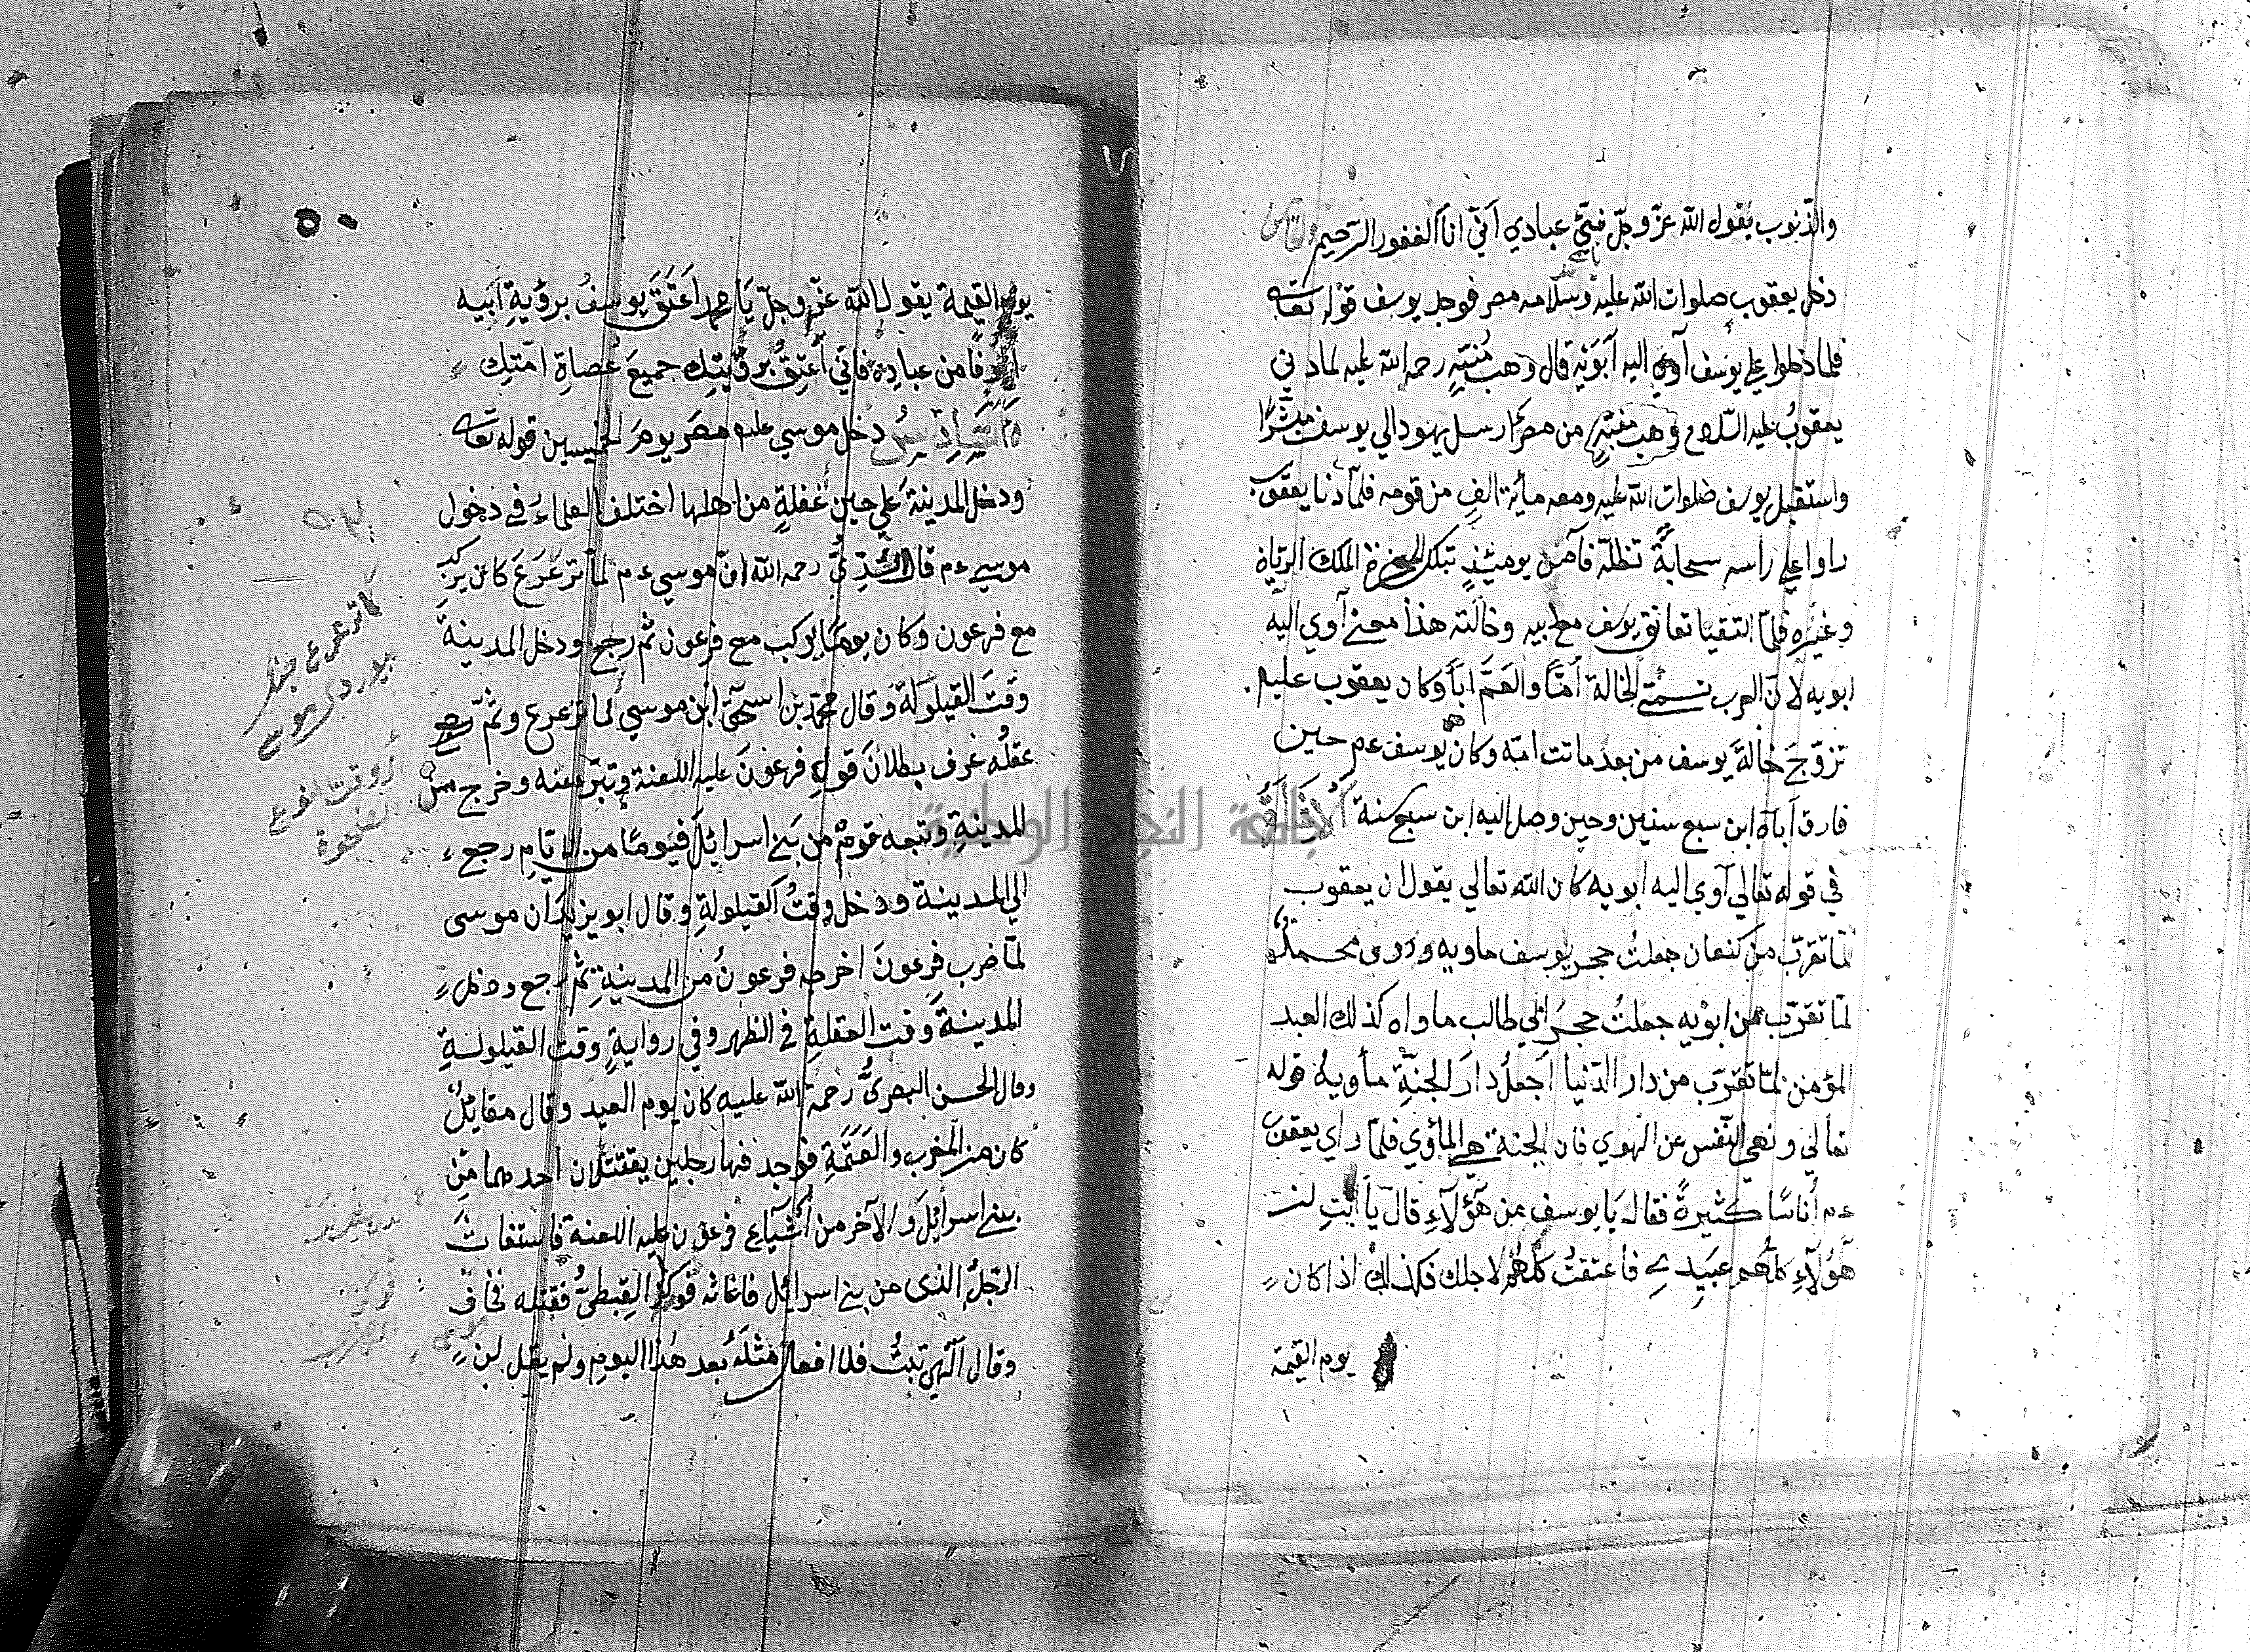 والذنوب يقول الله عزّ وجلّ نبّئ عبادي أنّي أنا الغفور الرّحيم والخامس
دخل يعقوب صلوات الله عليه وسلامه مصر فوجد يوسف قوله تعالى
فلما دخلوا علي يوسف آوي اليه أبويه قال وهب منبّه رحمة الله عليه لما دني
يعقوب عليه السّلام من مصر ارسل يهودا الي يوسف مبشّرًا
واستقبل يوسف صلوات الله عليه ومعه مأية الف من قومه فلمّا دنا يعقوب
راوا علي راسه سحابةً تظلّه فآمن يومئذٍ بتلك المعجزة الملك الريّان
وغيره فلمّا التقيا تعانق يوسف مع ابيه وخالته هذا معني آوي اليه
ابويه لانّ العرب تسمّي الخالة أمًّا والعمَّ أبًا وكان يعقوب عليه
تزوّجَ خالةَ يوسف من بعد ماتت امّه وكان يوسف عم حين
فارق أباه ابن سبع سنين وحين وصل اليه ابن سبع سنة
في قوله تعالي آوي اليه ابويه كان الله تعالي يقول ان يعقوب
لمّا تقرّب من كنعان جعلتُ حجر يوسف ماويه وروى محمدٌ
لمّا تقرّب من ابويه جعلتُ حجرَ ابي طالب ماواه كذلك العبد
المؤمن لمّا تقرّب من دار الدّنيا أجعلُ دارَ الجنّةِ مأويهُ قوله
تعالي ونهي النّفس عن الهوي فان الجنة هي المأوي فلمّا راي يعقوب
عم أناسًا كثيرةً فقال يا يوسف من هؤلاءِ قال يا أبتِ
هؤلاءِ كلّهم عبيدي فأعتقتُ كلّهم لاجلك فكذلك اذا كان
يوم القيمة
٥٠
يوم القيمة يقول الله عزّ وجلّ يا محمد أعتَقَ يوسفُ برؤيةِ أبيه
الوفًا من عباده فانّي أعتِقُ برؤيتِك جميعَ عُصاةِ امّتك
والسّادس دخل موسي عليه مصر يوم الخميس قوله تعالى
ودخل المدينة علي حين غفلةٍ من اهلها اختلف العلماءُ في دخول
موسي عم قال السّدّي رحمه الله انّ موسي عم لمّا ترعرعَ كان يركب
مع فرعون وكان يومًا يركب مع فرعون ثم رجع ودخل المدينةَ
وقتَ القيلولة وقال محمد بن اسحق ان موسي لما ترعرع وتمّ
عقلُه عرف بطلانَ قولِ فرعونَ عليه اللعنة وتبرّء عنه وخرج من
المدينةِ وتبعه قومٌ من بني اسرائلَ فيومًا من الايّام رجع
الي المدينة ودخل وقتُ القيلولةِ وقال ابو يزيد ان موسى
لمّا ضرب فرعونَ اخرجه فرعونُ من المدينةِ ثم رجع ودخل
المدينةَ وقت الغفلةِ في الظهر وفي روايةٍ وقت القيلولةِ
وقال الحسن البصريُّ رحمة الله عليه كان يوم العيد وقال مقاتلٌ
كان بين المغرب والعَتَمَةِ فوجد فيها رجلين يقتتلان احدهما من
بني اسرائلَ والآخر من أشياعِ فرعون عليه اللعنة فاستغاثَ
الرّجلُ الذى من بني اسرائل فاغاثه فوكزَ القِبطيَّ فقتله فخاف
وقال الّهي تبتُ فلا افعل مثلَهُ بعد هذا اليوم ولم يقل لن
جامعة النجاح الوطنية